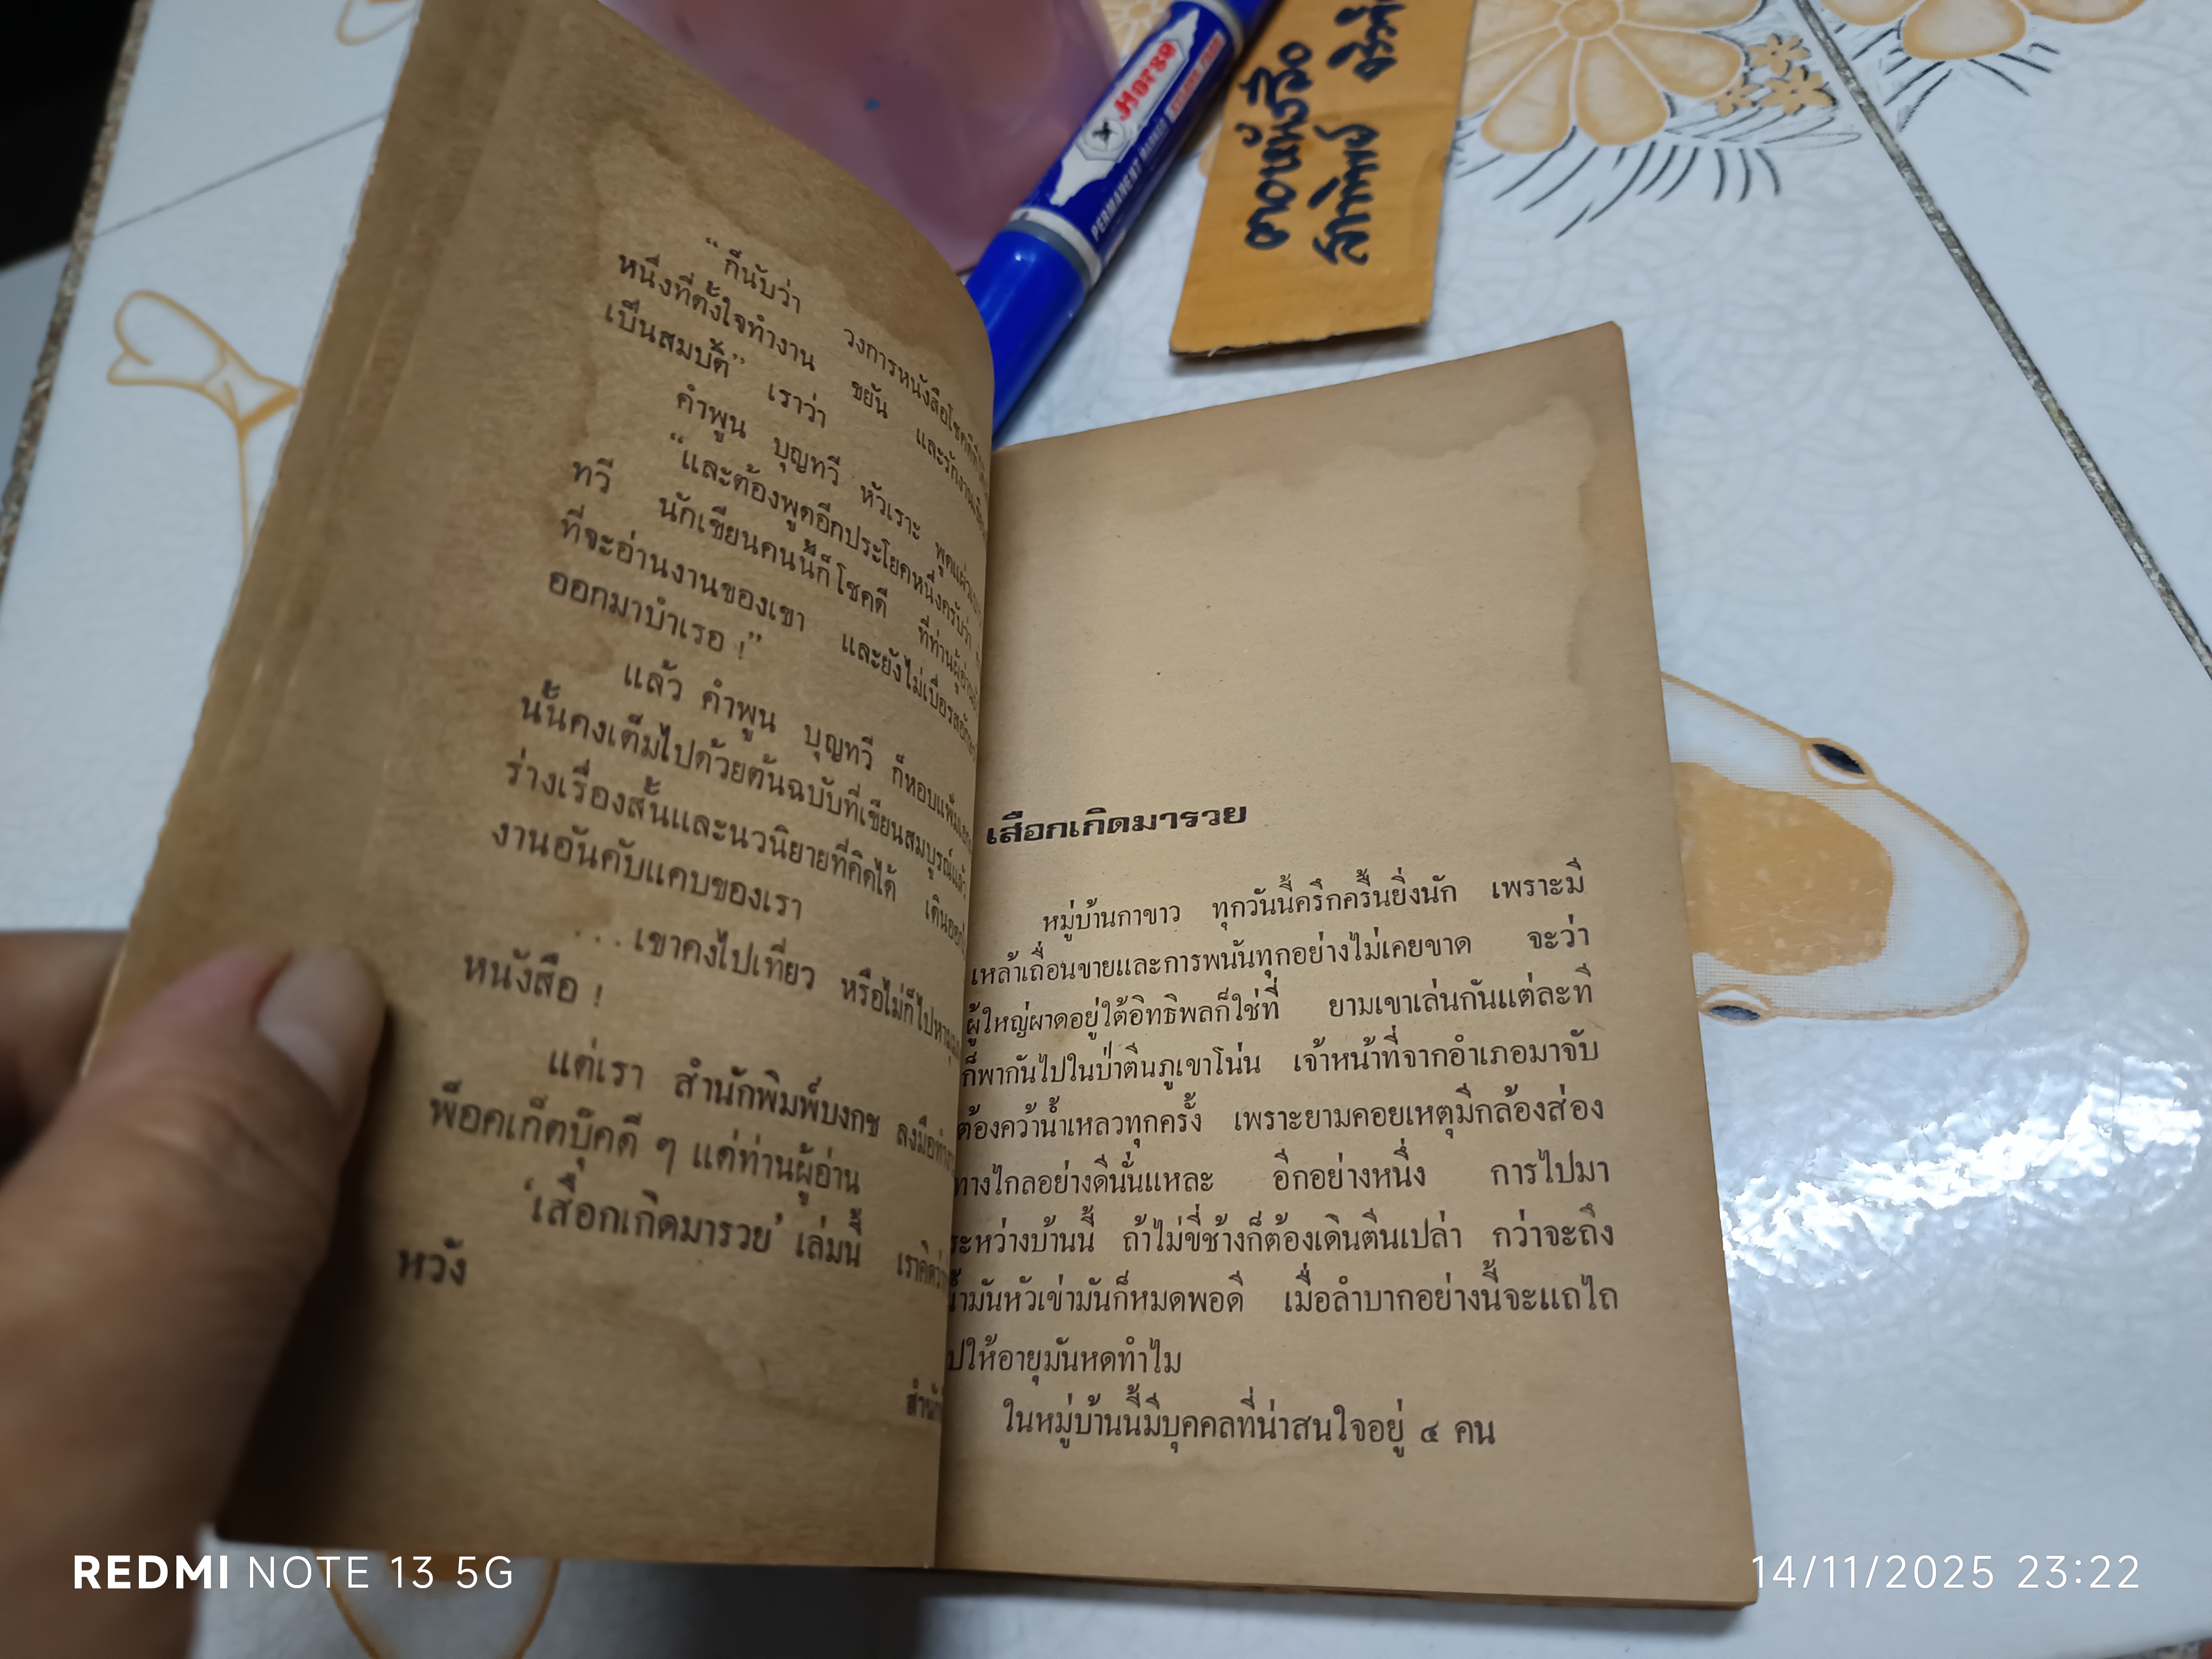 “ก็นับว่า วงการหนังสือโชคดีที่
หนึ่งที่ตั้งใจทำงาน ขยัน และรักงาน
เป็นสมบัติ” เราว่า
คำพูน บุญทวี หัวเราะ พูด
“และต้องพูดอีกประโยคหนึ่งครับว่า
ทวี นักเขียนคนนี้ก็โชคดี ที่ท่านผู้อ่าน
ที่จะอ่านงานของเขา และยังไม่เบื่อ
ออกมาบำเรอ !”
แล้ว คำพูน บุญทวี ก็หอบแฟ้ม
นั้นคงเต็มไปด้วยต้นฉบับที่เขียนสมบูรณ์แล้ว
ร่างเรื่องสั้นและนวนิยายที่คิดได้ เดินออก
งานอันคับแคบของเรา
...เขาคงไปเที่ยว หรือไม่ก็ไปหา
หนังสือ !
แต่เรา สำนักพิมพ์บงกช ลงมือทำ
พ็อคเก็ตบุ๊คดี ๆ แด่ท่านผู้อ่าน
‘เสือกเกิดมารวย’ เล่มนี้ เราคิดว่า
หวัง
เสือกเกิดมารวย
หมู่บ้านกาขาว ทุกวันนี้ครึกครื้นยิ่งนัก เพราะมี
เหล้าเถื่อนขายและการพนันทุกอย่างไม่เคยขาด จะว่า
ผู้ใหญ่ผาดอยู่ใต้อิทธิพลก็ใช่ที่ ยามเขาเล่นกันแต่ละที
ก็พากันไปในป่าตีนภูเขาโน่น เจ้าหน้าที่จากอำเภอมาจับ
ต้องคว้าน้ำเหลวทุกครั้ง เพราะยามคอยเหตุมีกล้องส่อง
ทางไกลอย่างดีนั่นแหละ อีกอย่างหนึ่ง การไปมา
ระหว่างบ้านนี้ ถ้าไม่ขี่ช้างก็ต้องเดินตีนเปล่า กว่าจะถึง
น้ำมันหัวเข่ามันก็หมดพอดี เมื่อลำบากอย่างนี้จะแถไถ
ไปให้อายุมันหดทำไม
ในหมู่บ้านนี้มีบุคคลที่น่าสนใจอยู่ ๔ คน
Horse
PERMANENT MARKER
REDMI NOTE 13 5G
14/11/2025 23:22